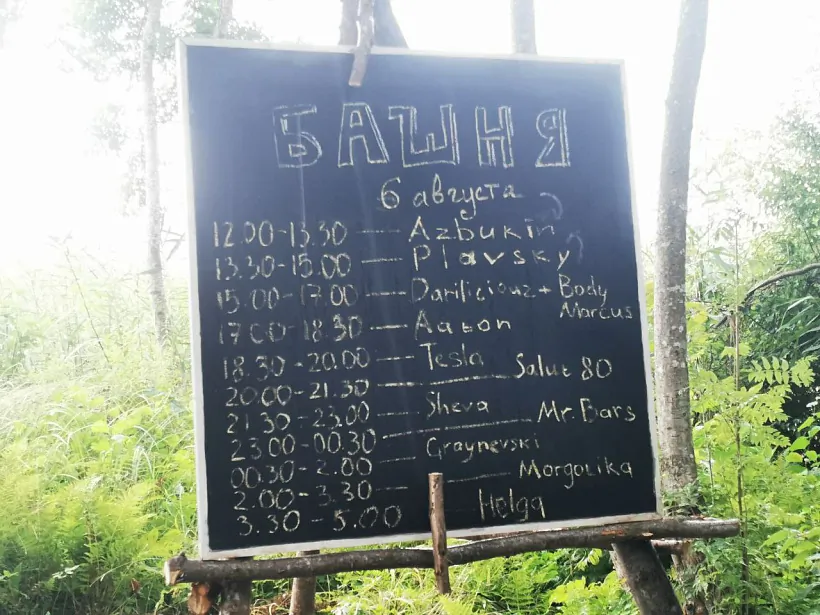 БАШНЯ
6 августа
12.00-13.30 — Azbukin
13.30-15.00 — Plavsky
15.00-17.00 — Dariliciouz + Body Marcus
17.00-18.30 — Aaton
18.30-20.00 — Tesla
20.00-21.30 — Salut 80
21.30-23.00 — Sheva
23.00-00.30 — Mr. Bars
00.30-2.00 — Graynevski
2.00-3.30 — Morgolika
3.30-5.00 Helga